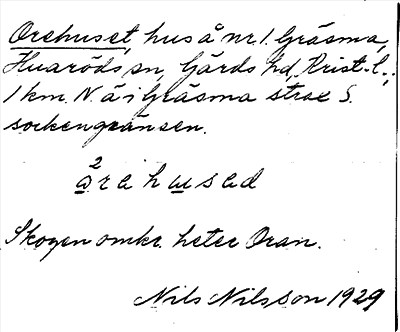 Orehuset, hus å nr 1 Gräsma,
Huaröds sn, Gärds hd, Krist. l.;
1 km. N. å i Gräsma strax S.
sockengränsen.
2
årehused
Skogen omkr. heter Oran.
Nils Nilsson 1929